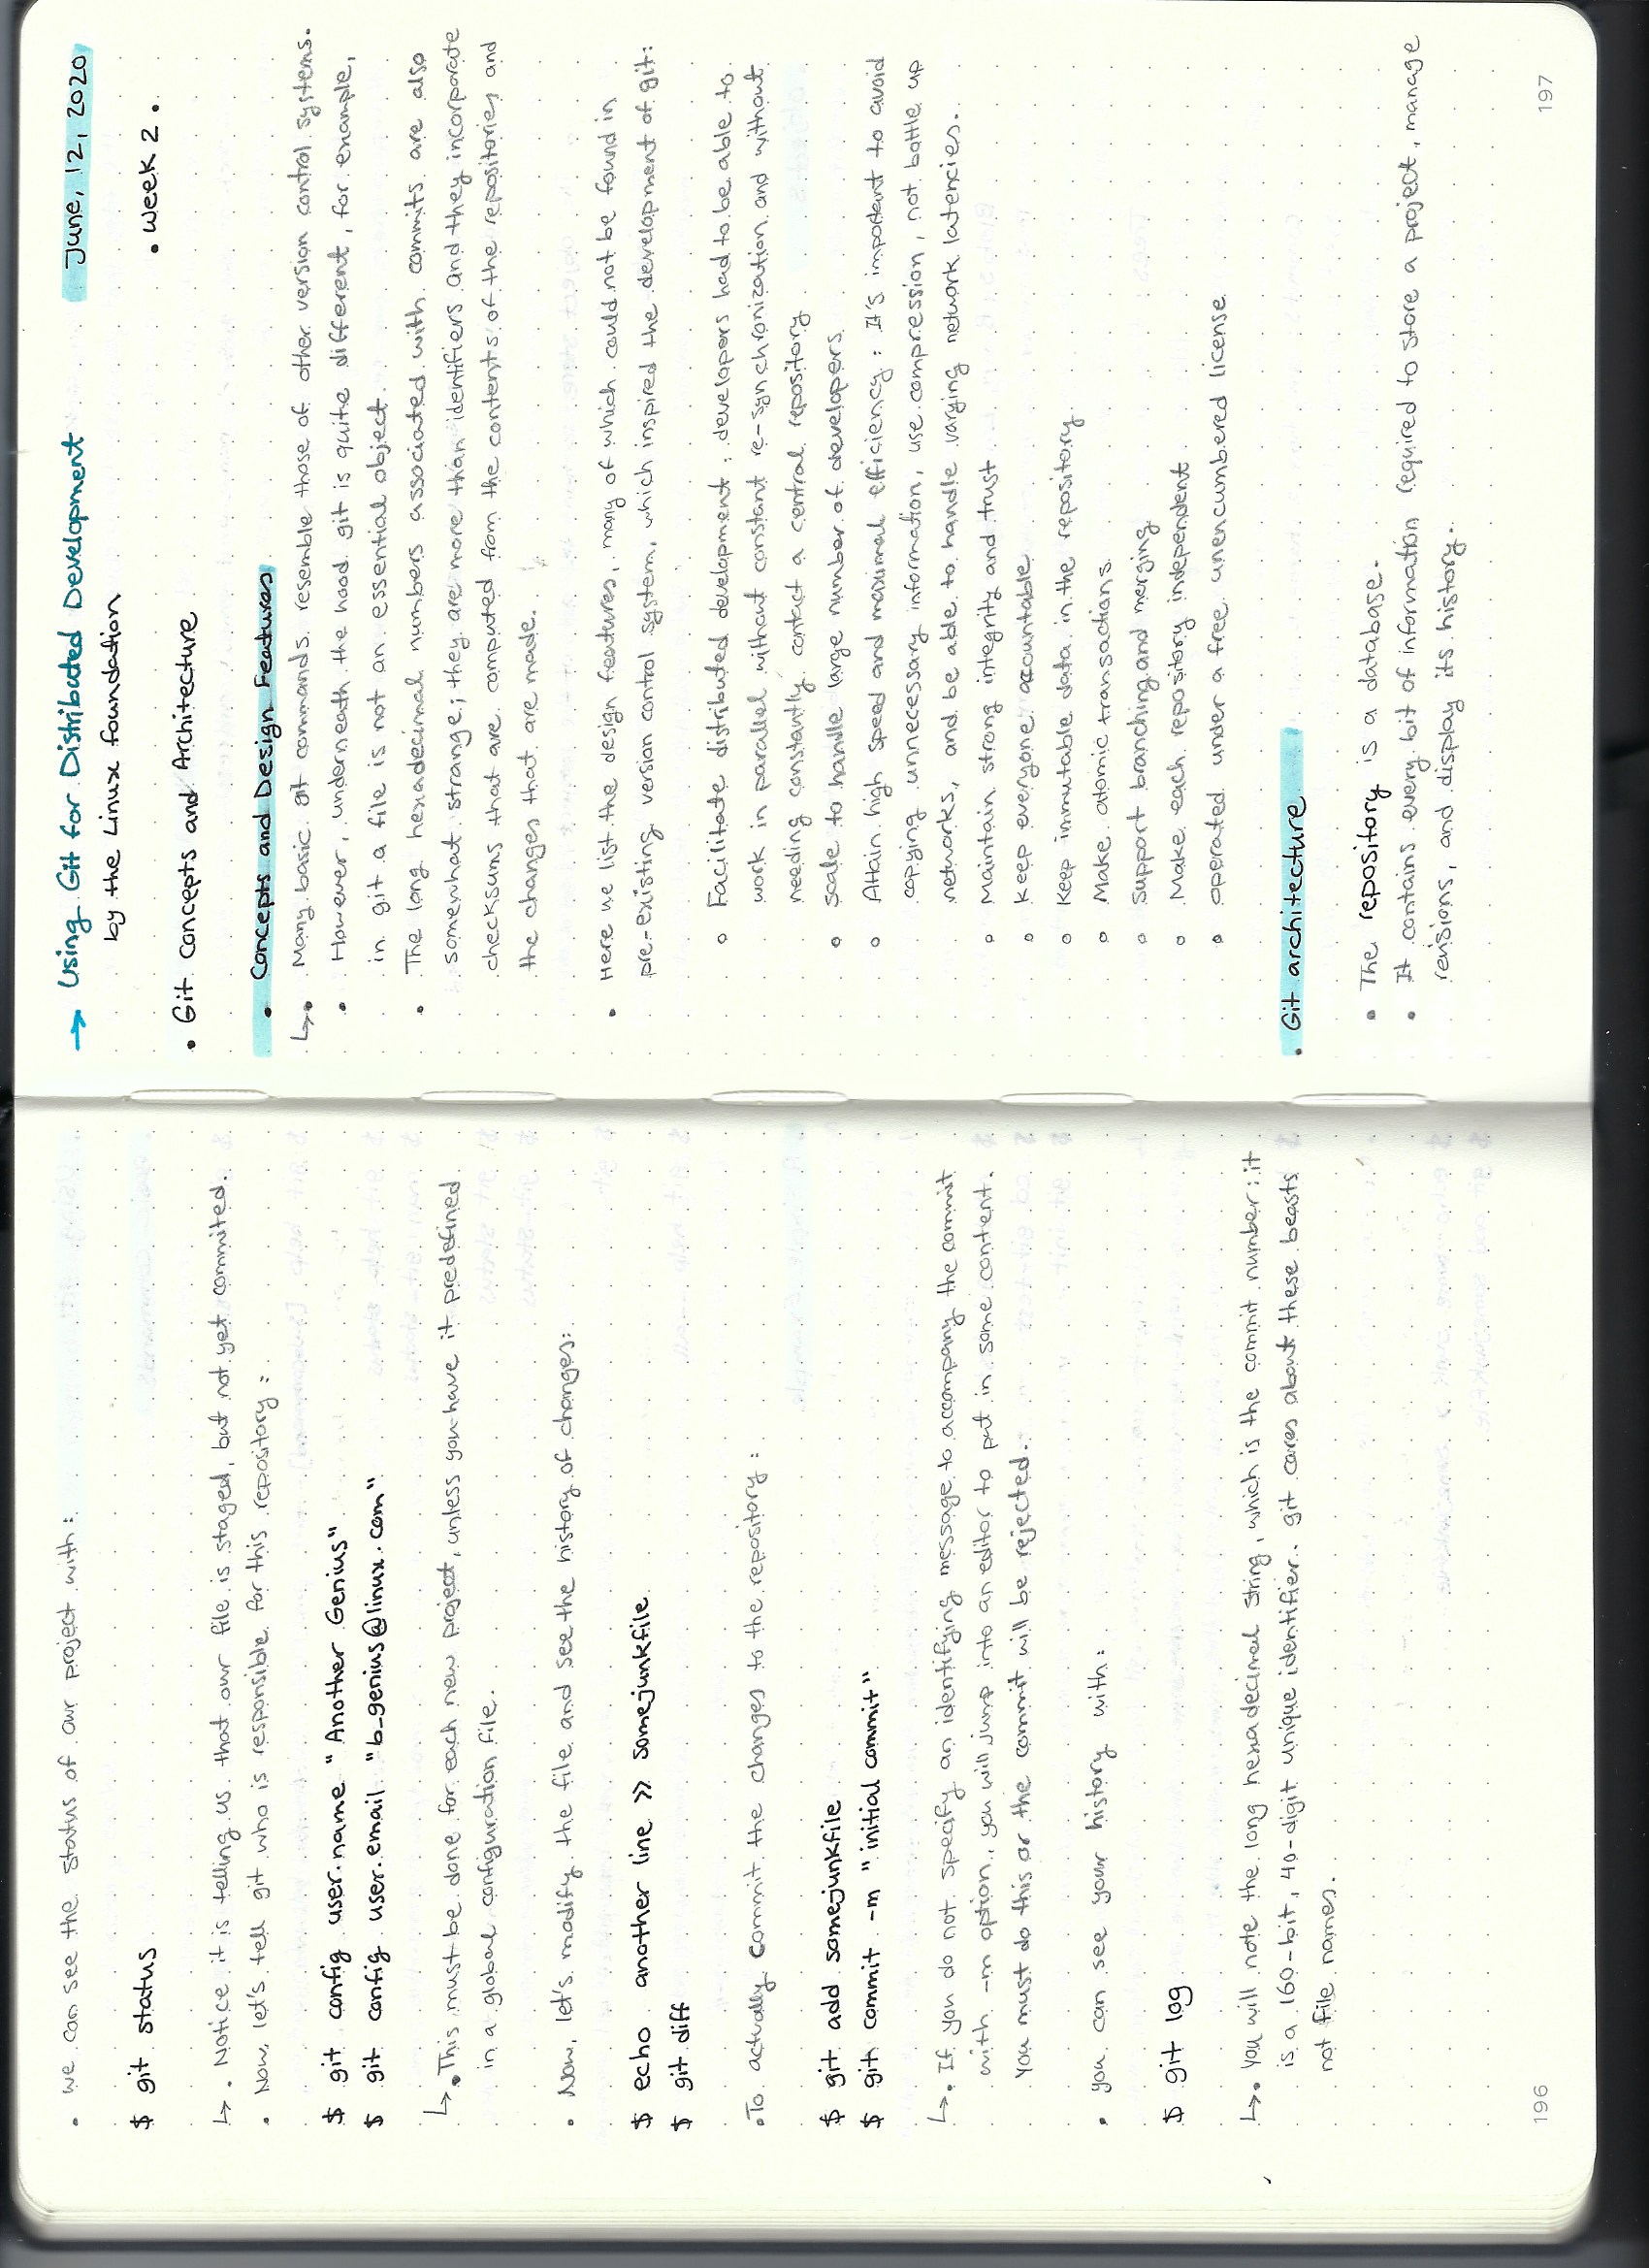 . we can see the status of our project with:
$ git status
↳ . Notice it is telling us that our file is staged, but not yet commited.
. Now, let's tell git who is responsible for this repository:
$ git config user.name "Another Genius"
$ git config user.email "b_genius@linux.com"
↳ . This must be done for each new project, unless you have it predefined
in a global configuration file.
. Now, let's modify the file and see the history of changes:
$ echo another line >> somejunkfile
$ git diff
. To actually commit the changes to the repository:
$ git add somejunkfile
$ git commit -m "initial commit"
↳ . If you do not specify an identifying message to accompany the commit
with -m option, you will jump into an editor to put in some content.
You must do this or the commit will be rejected.
. you can see your history with:
$ git log
↳ . You will note the long hexadecimal string, which is the commit number: it
is a 160-bit, 40-digit unique identifier. git cares about these beasts
not file names.
196
→ Using Git for Distributed Development
June, 12, 2020
by the Linux foundation
. Week 2 .
. Git Concepts and Architecture
. Concepts and Design Features
↳ . Many basic git commands resemble those of other version control systems.
. However, underneath the hood git is quite different, for example,
in git a file is not an essential object.
. The long hexadecimal numbers associated with commits are also
somewhat strange; they are more than identifiers and they incorporate
checksums that are computed from the contents of the repositories and
the changes that are made.
. Here we list the design features, many of which could not be found in
pre-existing version control system, which inspired the development of git:
o Facilitate distributed development: developers had to be able to
work in parallel without constant re-synchronization and without
needing constantly contact a central repository
o scale to handle large number of developers
o Attain high speed and maximal efficiency: It's important to avoid
copying unnecessary information, use compression, not bottle up
networks, and be able to handle varying network latencies.
o Maintain strong integrity and trust
o Keep everyone accountable
o Keep immutable data in the repository
o Make atomic transactions
o support branching and merging
o Make each repository independent
o operated under a free unencumbered license
. Git architecture
. The repository is a database.
. It contains every bit of information required to store a project, manage
revisions, and display its history.
197